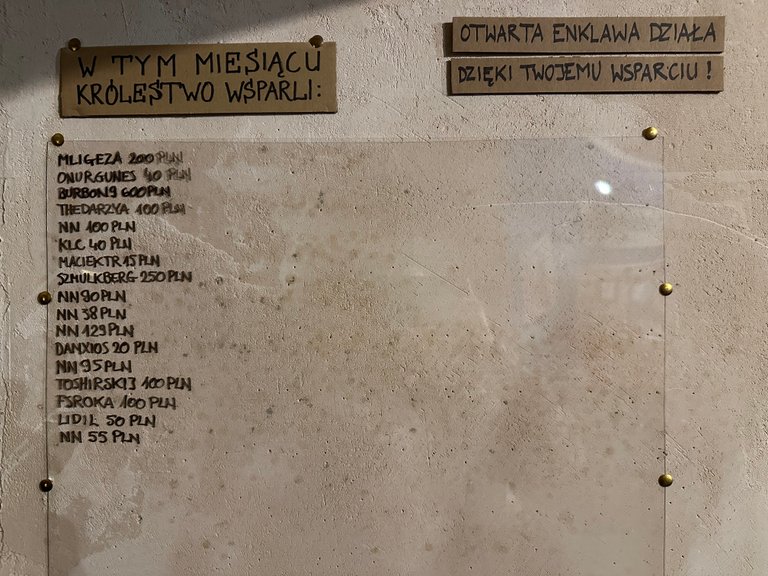 W TYM MIESIĄCU
KRÓLESTWO WSPARLI:
OTWARTA ENKLAWA DZIAŁA
DZIĘKI TWOJEMU WSPARCIU !
MLIGEZA 200 PLN
ONURGUNES 40 PLN
BURBON9 600 PLN
THEDARZYA 100 PLN
NN 100 PLN
KLC 40 PLN
MACIEKTR 15 PLN
SZMULKBERG 250 PLN
NN 90 PLN
NN 38 PLN
NN 129 PLN
DANXIOS 20 PLN
NN 95 PLN
TOSHIRSKI3 100 PLN
FSROKA 100 PLN
LIDIL 50 PLN
NN 55 PLN